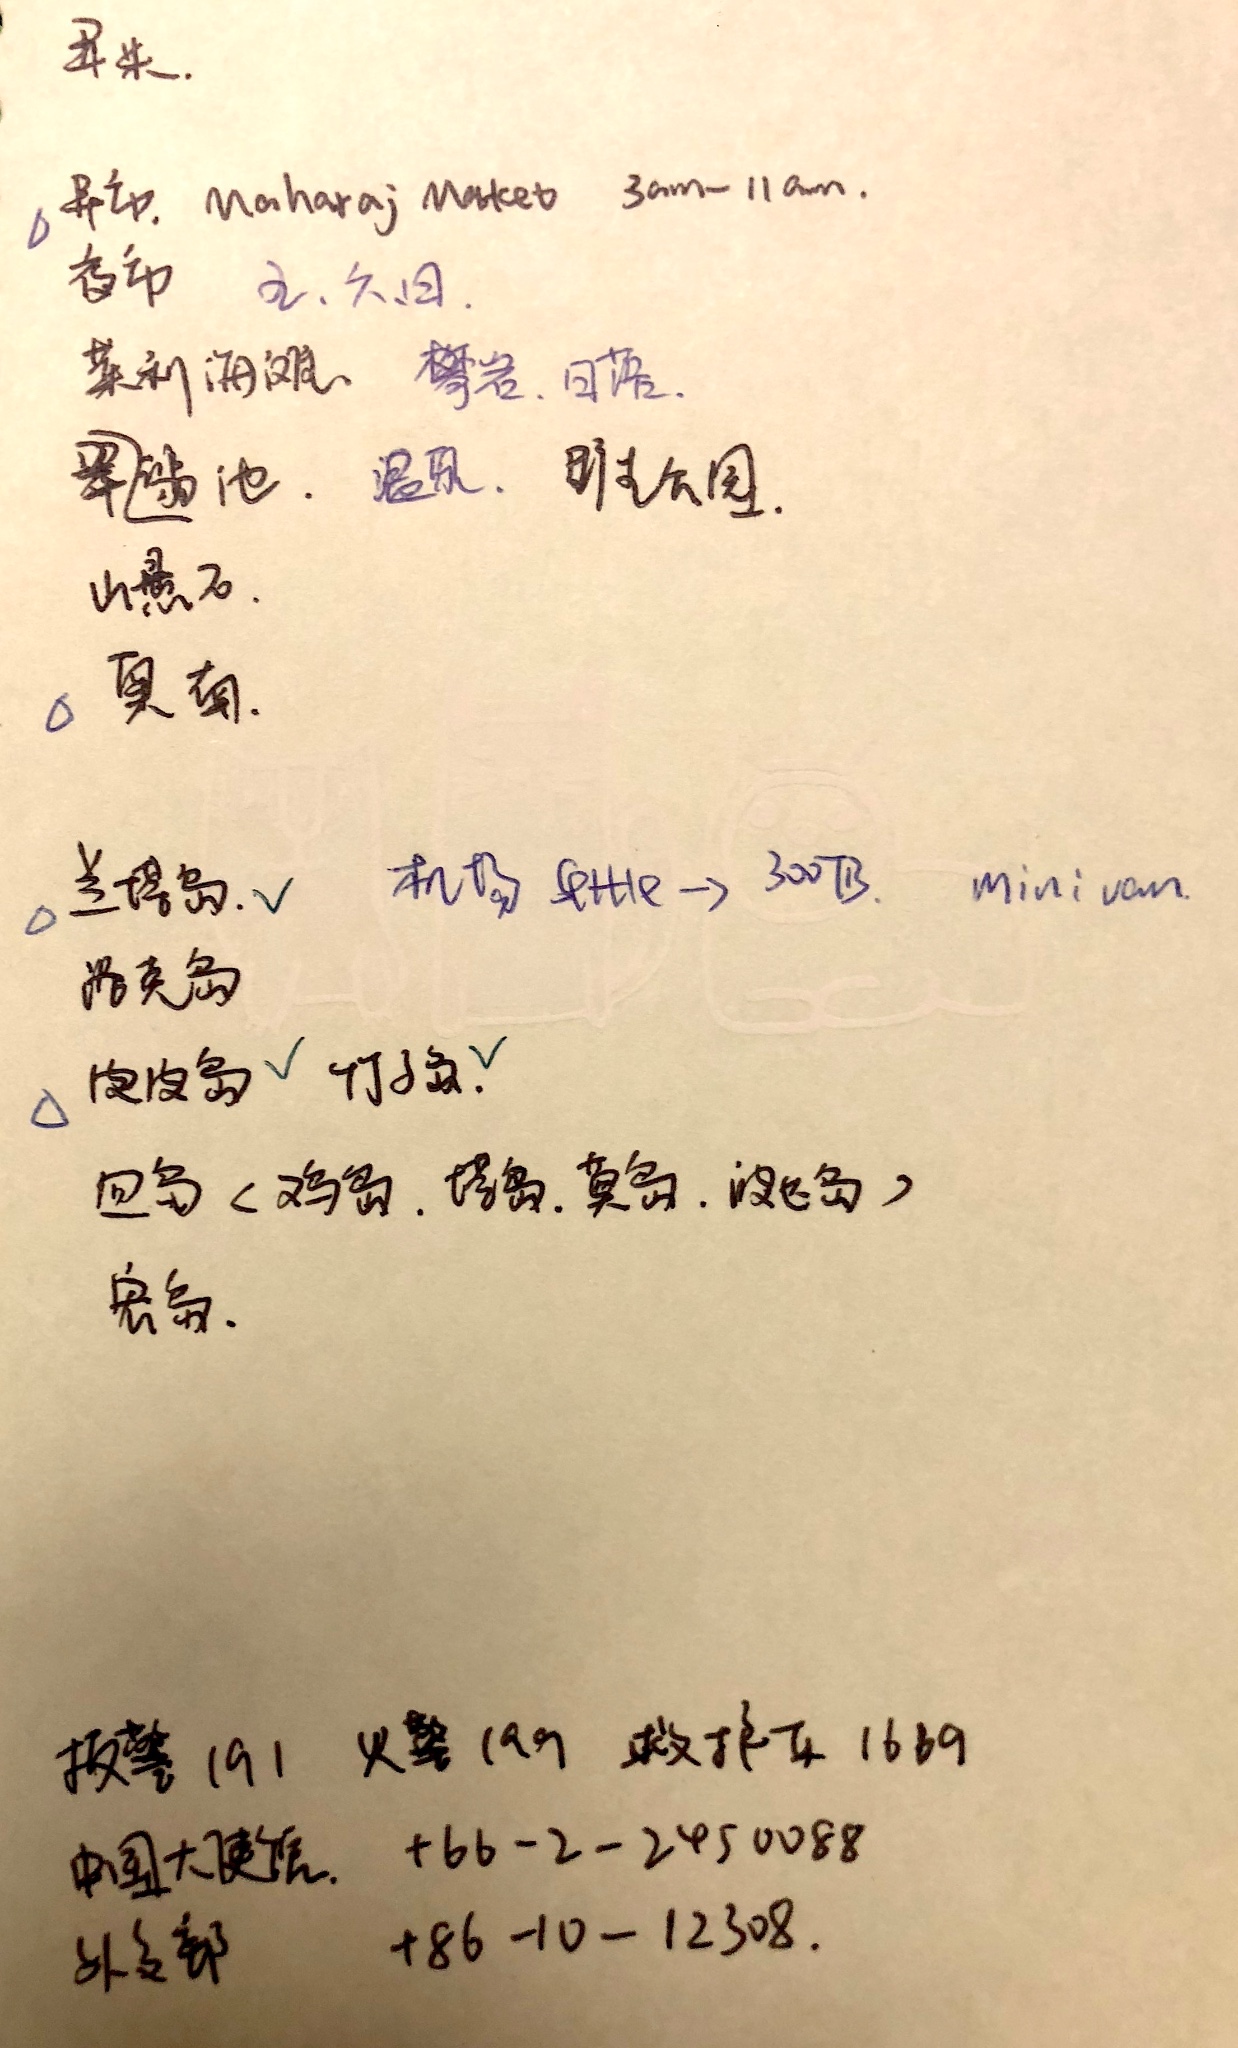 甲米.
早市. Maharaj Market 3am-11am.
夜市 五、六、日.
莱利海滩、 攀岩. 日落.
翠 池. 温泉. 公园.
山悬石.
奥南.
兰塔岛.✓ 机场 settle → 300TB. mini van.
洛克岛
皮皮岛✓ 竹子岛.✓
四岛 (鸡岛. 塔岛. 莫岛. 波达岛)
宏岛.
报警 191 火警 199 救护车 1669
中国大使馆. +66-2-2450088
外交部 +86-10-12308.